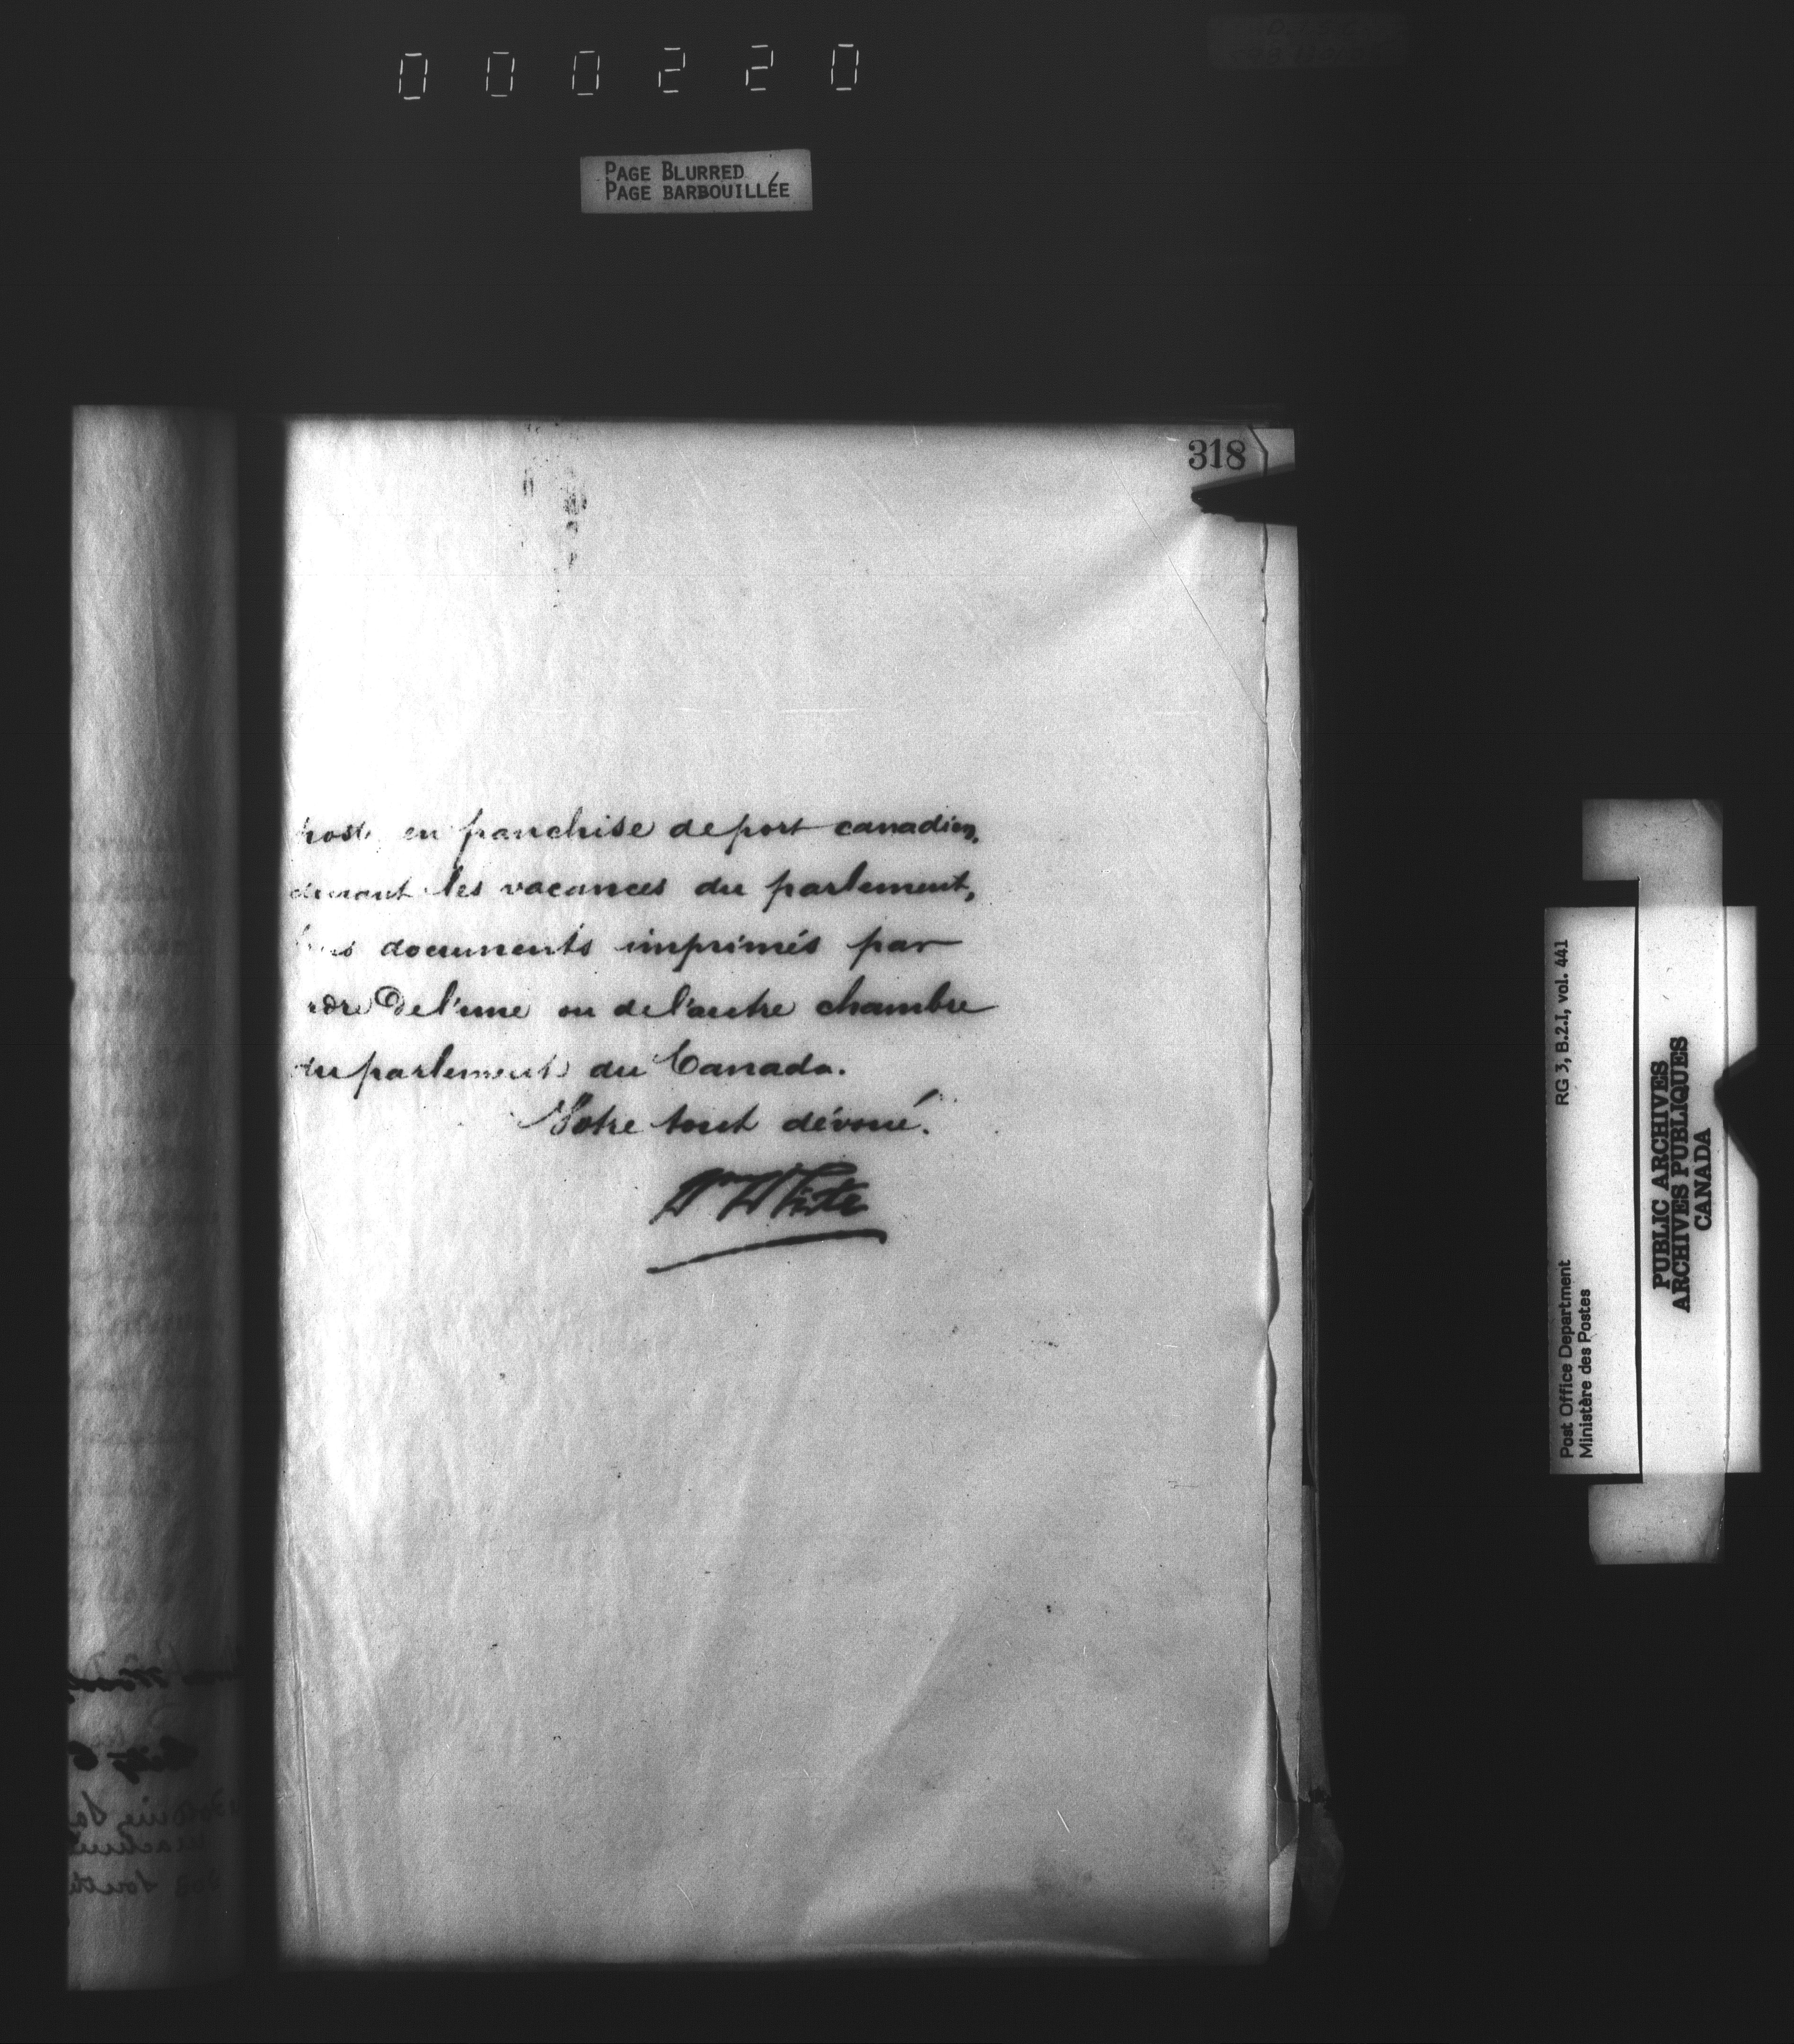 000220
PAGE BLURRED
PAGE BARBOUILLÉE
318
en franchise de port canadien,
durant les vacances du parlement,
documents imprimés par
de l'une ou de l'autre chambre
du parlement du Canada.
Votre tout dévoué.
Wm White
RG 3, B.2.I, vol. 441
Post Office Department
Ministère des Postes
PUBLIC ARCHIVES
ARCHIVES PUBLIQUES
CANADA